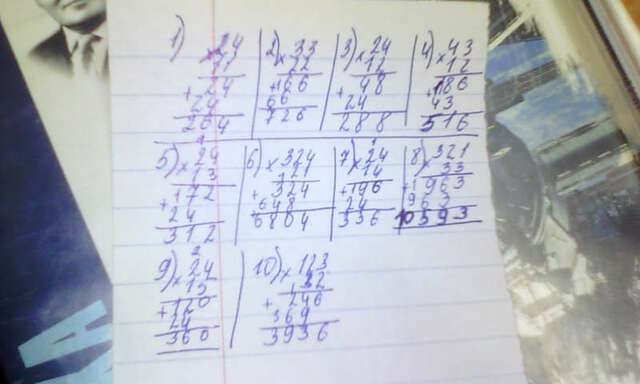 1) ×24
11
+24
24
264
2) ×33
22
+66
66
726
3) ×24
12
+48
24
288
4) ×43
12
+86
43
516
5) 1
×24
13
+72
24
312
6) ×324
21
+324
648
6804
7) 1
×24
14
+96
24
336
8) ×321
33
+963
963
10593
9) 2
×24
15
+120
24
360
10) ×123
32
+246
369
3936